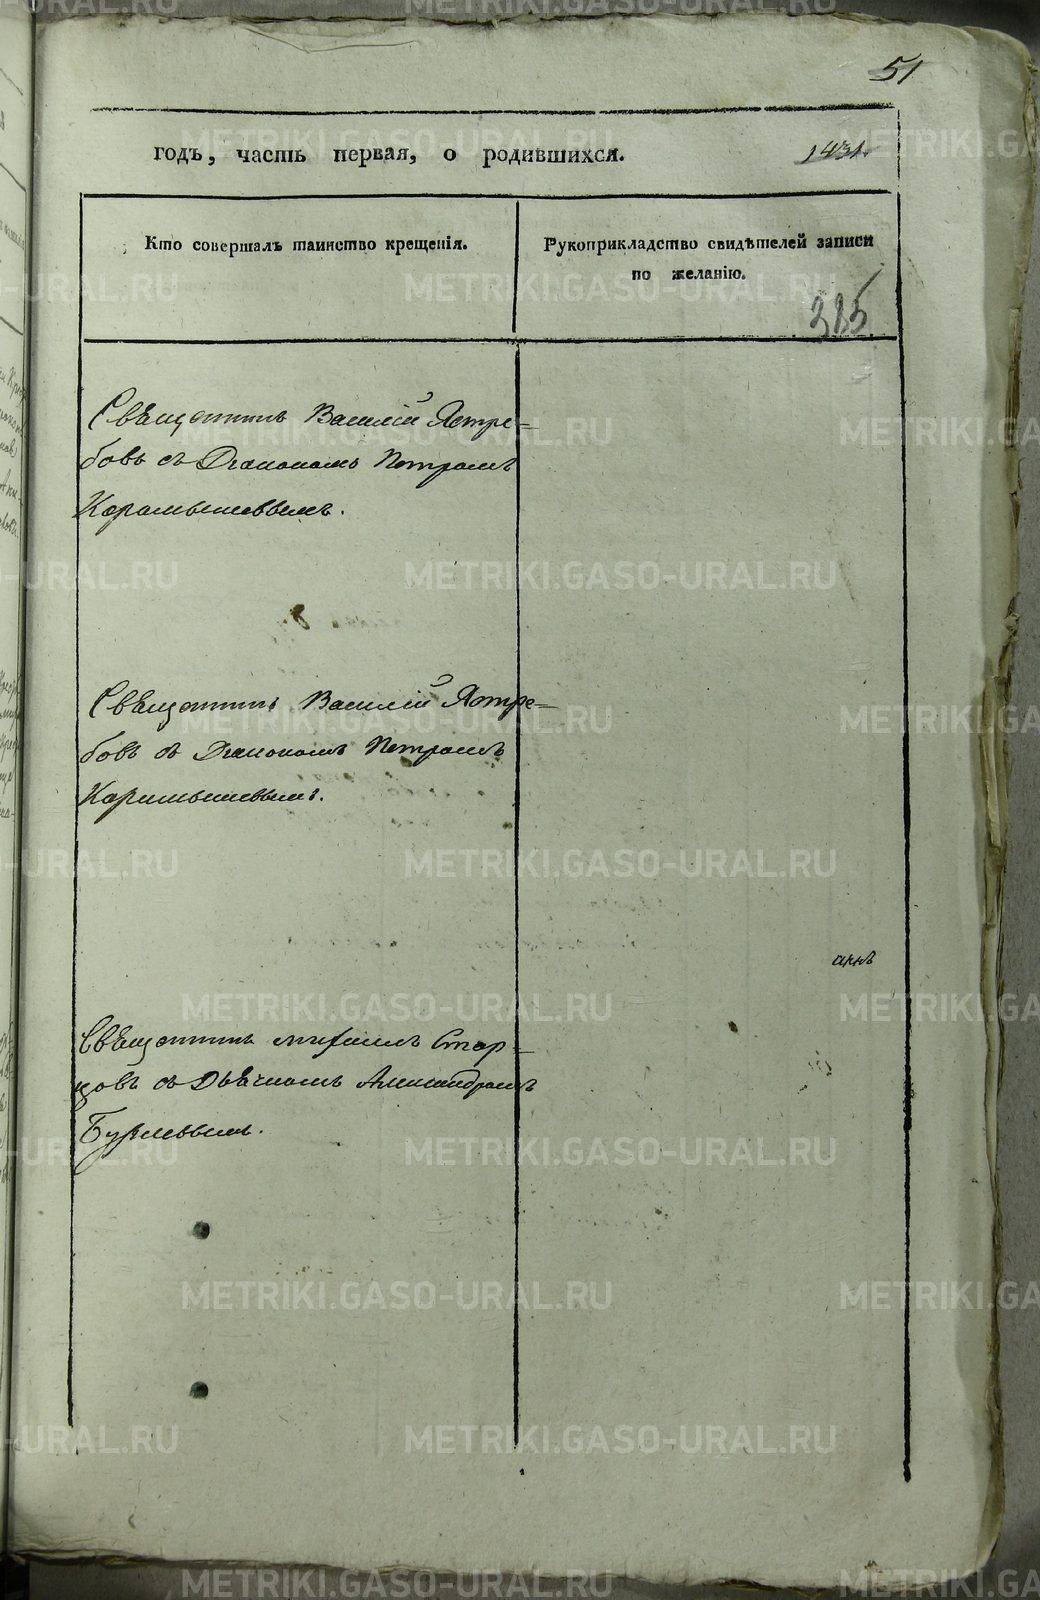 51
годъ, часть первая, о родившихся.
1431.
Кто совершалъ таинство крещенія.
Рукоприкладство свидѣтелей записи
по желанію.
385
Священникъ Василій Ястре=
бовъ съ Діакономъ Петромъ
Карамышевымъ.
Священникъ Василій Ястре=
бовъ съ Діакономъ Петромъ
Карамышевымъ.
Священникъ Михаилъ Стар=
цовъ съ Дьячкомъ Александромъ
METRIKI.GASO-URAL.RU